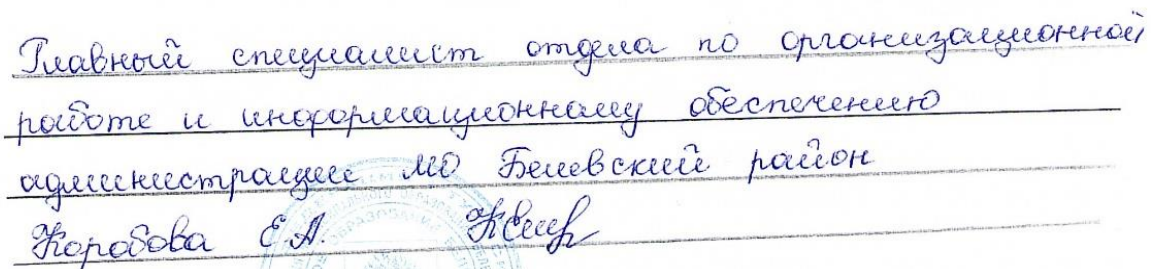 Главный специалист отдела по организационной
работе и информационному обеспечению
администрации МО Белевский район
Коробова Е.А.